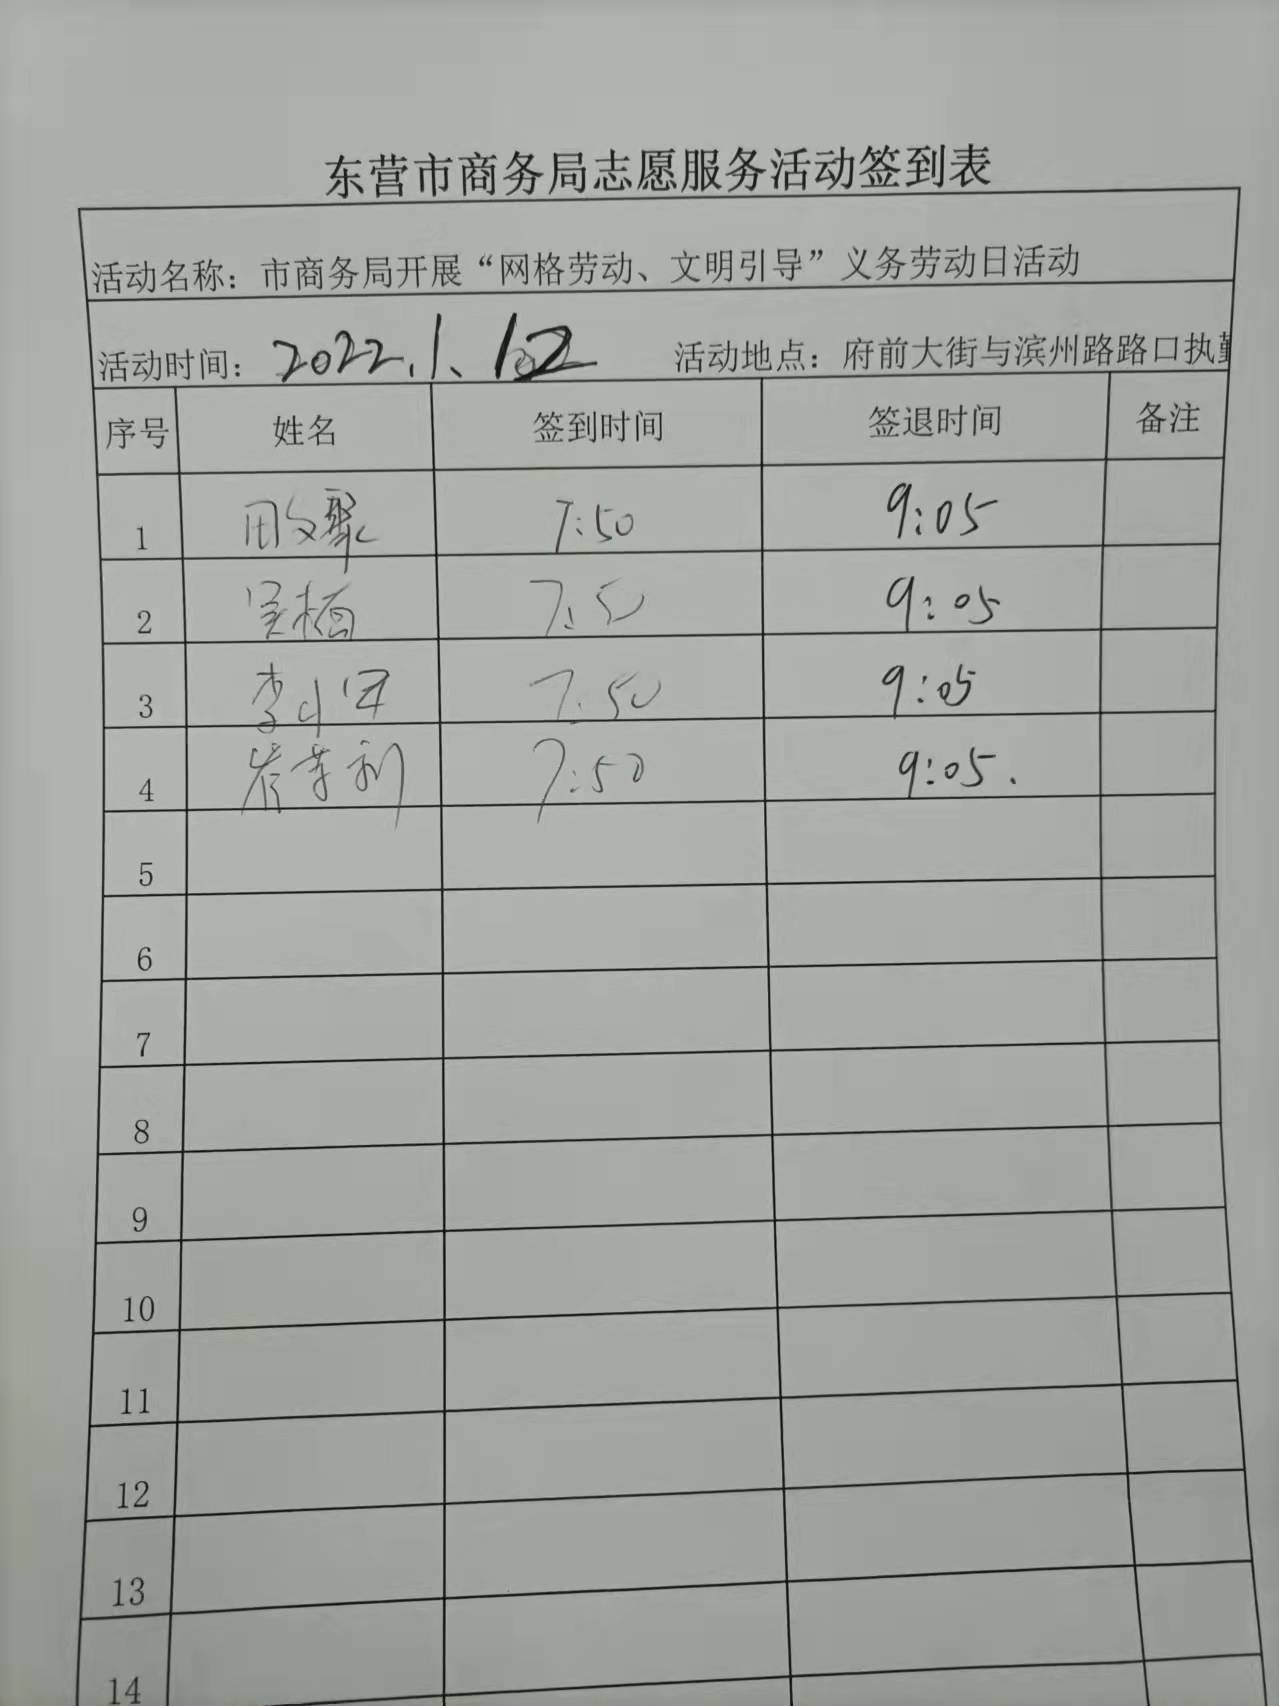 东营市商务局志愿服务活动签到表
活动名称：市商务局开展“网格劳动、文明引导”义务劳动日活动
活动时间：2022.1.12 活动地点：府前大街与滨州路路口执勤
序号 姓名 签到时间 签退时间 备注
1 田文聚 7:50 9:05
2 吴梅 7:50 9:05
3 李小军 7:50 9:05
4 7:50 9:05.
5
6
7
8
9
10
11
12
13
14